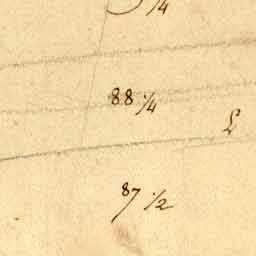 1/4
88 1/4
L
87 1/2